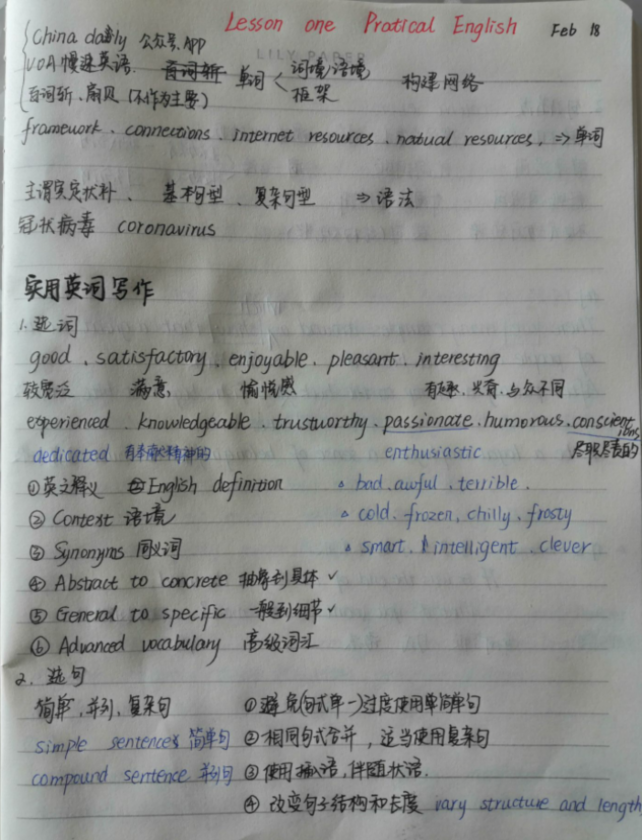 Lesson one Pratical English Feb 18
China daily 公众号、App
LILY PAPER
VOA慢速英语. 百词斩 单词 词境语境 构建网络
框架
百词斩、扇贝(不作为主要)
framework、connections、internet resources、natual resources、⇒单词
主谓宾定状补、基本句型、复杂句型 ⇒语法
冠状病毒 coronavirus
实用英词写作
1.选词
good、satisfactory、enjoyable、pleasant、interesting
较宽泛 满意, 愉悦感 有趣、兴奋、与众不同
experienced、knowledgeable、trustworthy、passionate、humorous、conscientions
dedicated 有奉献精神的 enthusiastic 尽职尽责的
①英文释义 English definition △ bad、awful、terrible.
② Context 语境 △ cold、frozen、chilly、frosty
③ Synonyms 同义词 △ smart、intelligent、clever
④ Abstract to concrete 抽象到具体✓
⑤ General to specific 一般到细节✓
⑥ Advanced vocabulary 高级词汇
2. 选句
简单,并列,复杂句 ①避免(句式单一)过度使用单简单句
simple sentences 简单句 ②相同句式合并,适当使用复杂句
compound sentence 并列句 ③使用插入语,伴随状语.
④ 改变句子结构和长度 vary structure and length